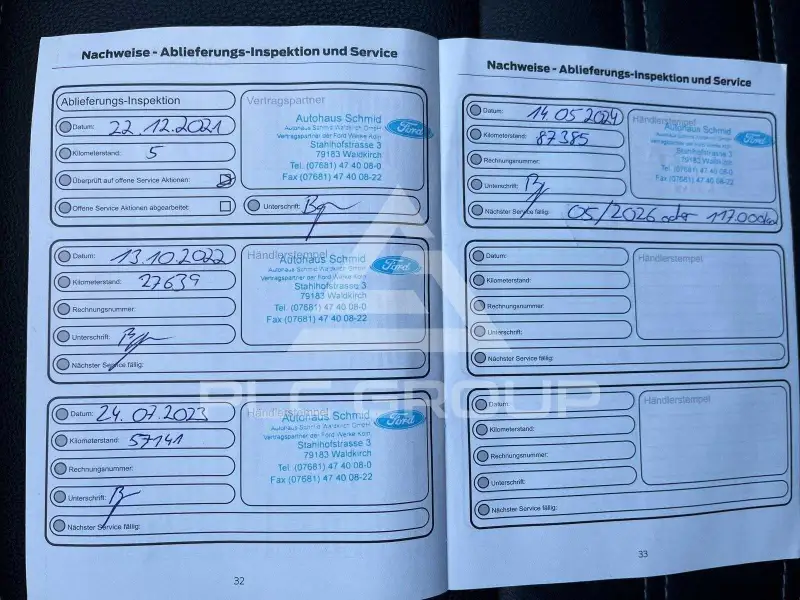 Nachweise - Ablieferungs-Inspektion und Service
Ablieferungs-Inspektion
Datum: 22.12.2021
Kilometerstand: 5
Überprüft auf offene Service Aktionen:
Offene Service Aktionen abgearbeitet:
Vertragspartner
Autohaus Schmid
Autohaus Schmid Waldkirch GmbH
Vertragspartner der Ford Werke Köln
Stahlhofstrasse 3
79183 Waldkirch
Tel. (07681) 47 40 08-0
Fax (07681) 47 40 08-22
Ford
Unterschrift:
Datum: 13.10.2022
Kilometerstand: 27639
Rechnungsnummer:
Unterschrift:
Nächster Service fällig:
Händlerstempel
Autohaus Schmid
Autohaus Schmid Waldkirch GmbH
Vertragspartner der Ford Werke Köln
Stahlhofstrasse 3
79183 Waldkirch
Tel. (07681) 47 40 08-0
Fax (07681) 47 40 08-22
Ford
Datum: 24.07.2023
Kilometerstand: 57141
Rechnungsnummer:
Unterschrift:
Nächster Service fällig:
Händlerstempel
Autohaus Schmid
Autohaus Schmid Waldkirch GmbH
Vertragspartner der Ford Werke Köln
Stahlhofstrasse 3
79183 Waldkirch
Tel. (07681) 47 40 08-0
Fax (07681) 47 40 08-22
Ford
32
Nachweise - Ablieferungs-Inspektion und Service
Datum: 14.05.2024
Kilometerstand: 87385
Rechnungsnummer:
Unterschrift:
Nächster Service fällig: 05/2026 oder 117.000km
Händlerstempel
Autohaus Schmid
Autohaus Schmid Waldkirch GmbH
Vertragspartner der Ford Werke Köln
Stahlhofstrasse 3
79183 Waldkirch
Tel. (07681) 47 40 08-0
Fax (07681) 47 40 08-22
Ford
Datum:
Kilometerstand:
Rechnungsnummer:
Unterschrift:
Nächster Service fällig:
Händlerstempel
Datum:
Kilometerstand:
Rechnungsnummer:
Unterschrift:
Nächster Service fällig:
Händlerstempel
33
PLC GROUP